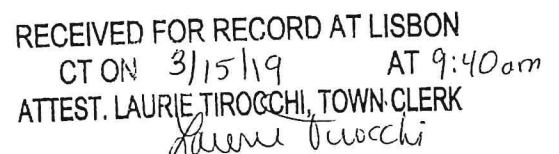 RECEIVED FOR RECORD AT LISBON
CT ON 3/15/19 AT 9:40am
ATTEST. LAURIE TIROCCHI, TOWN CLERK
Laurie Tirocchi